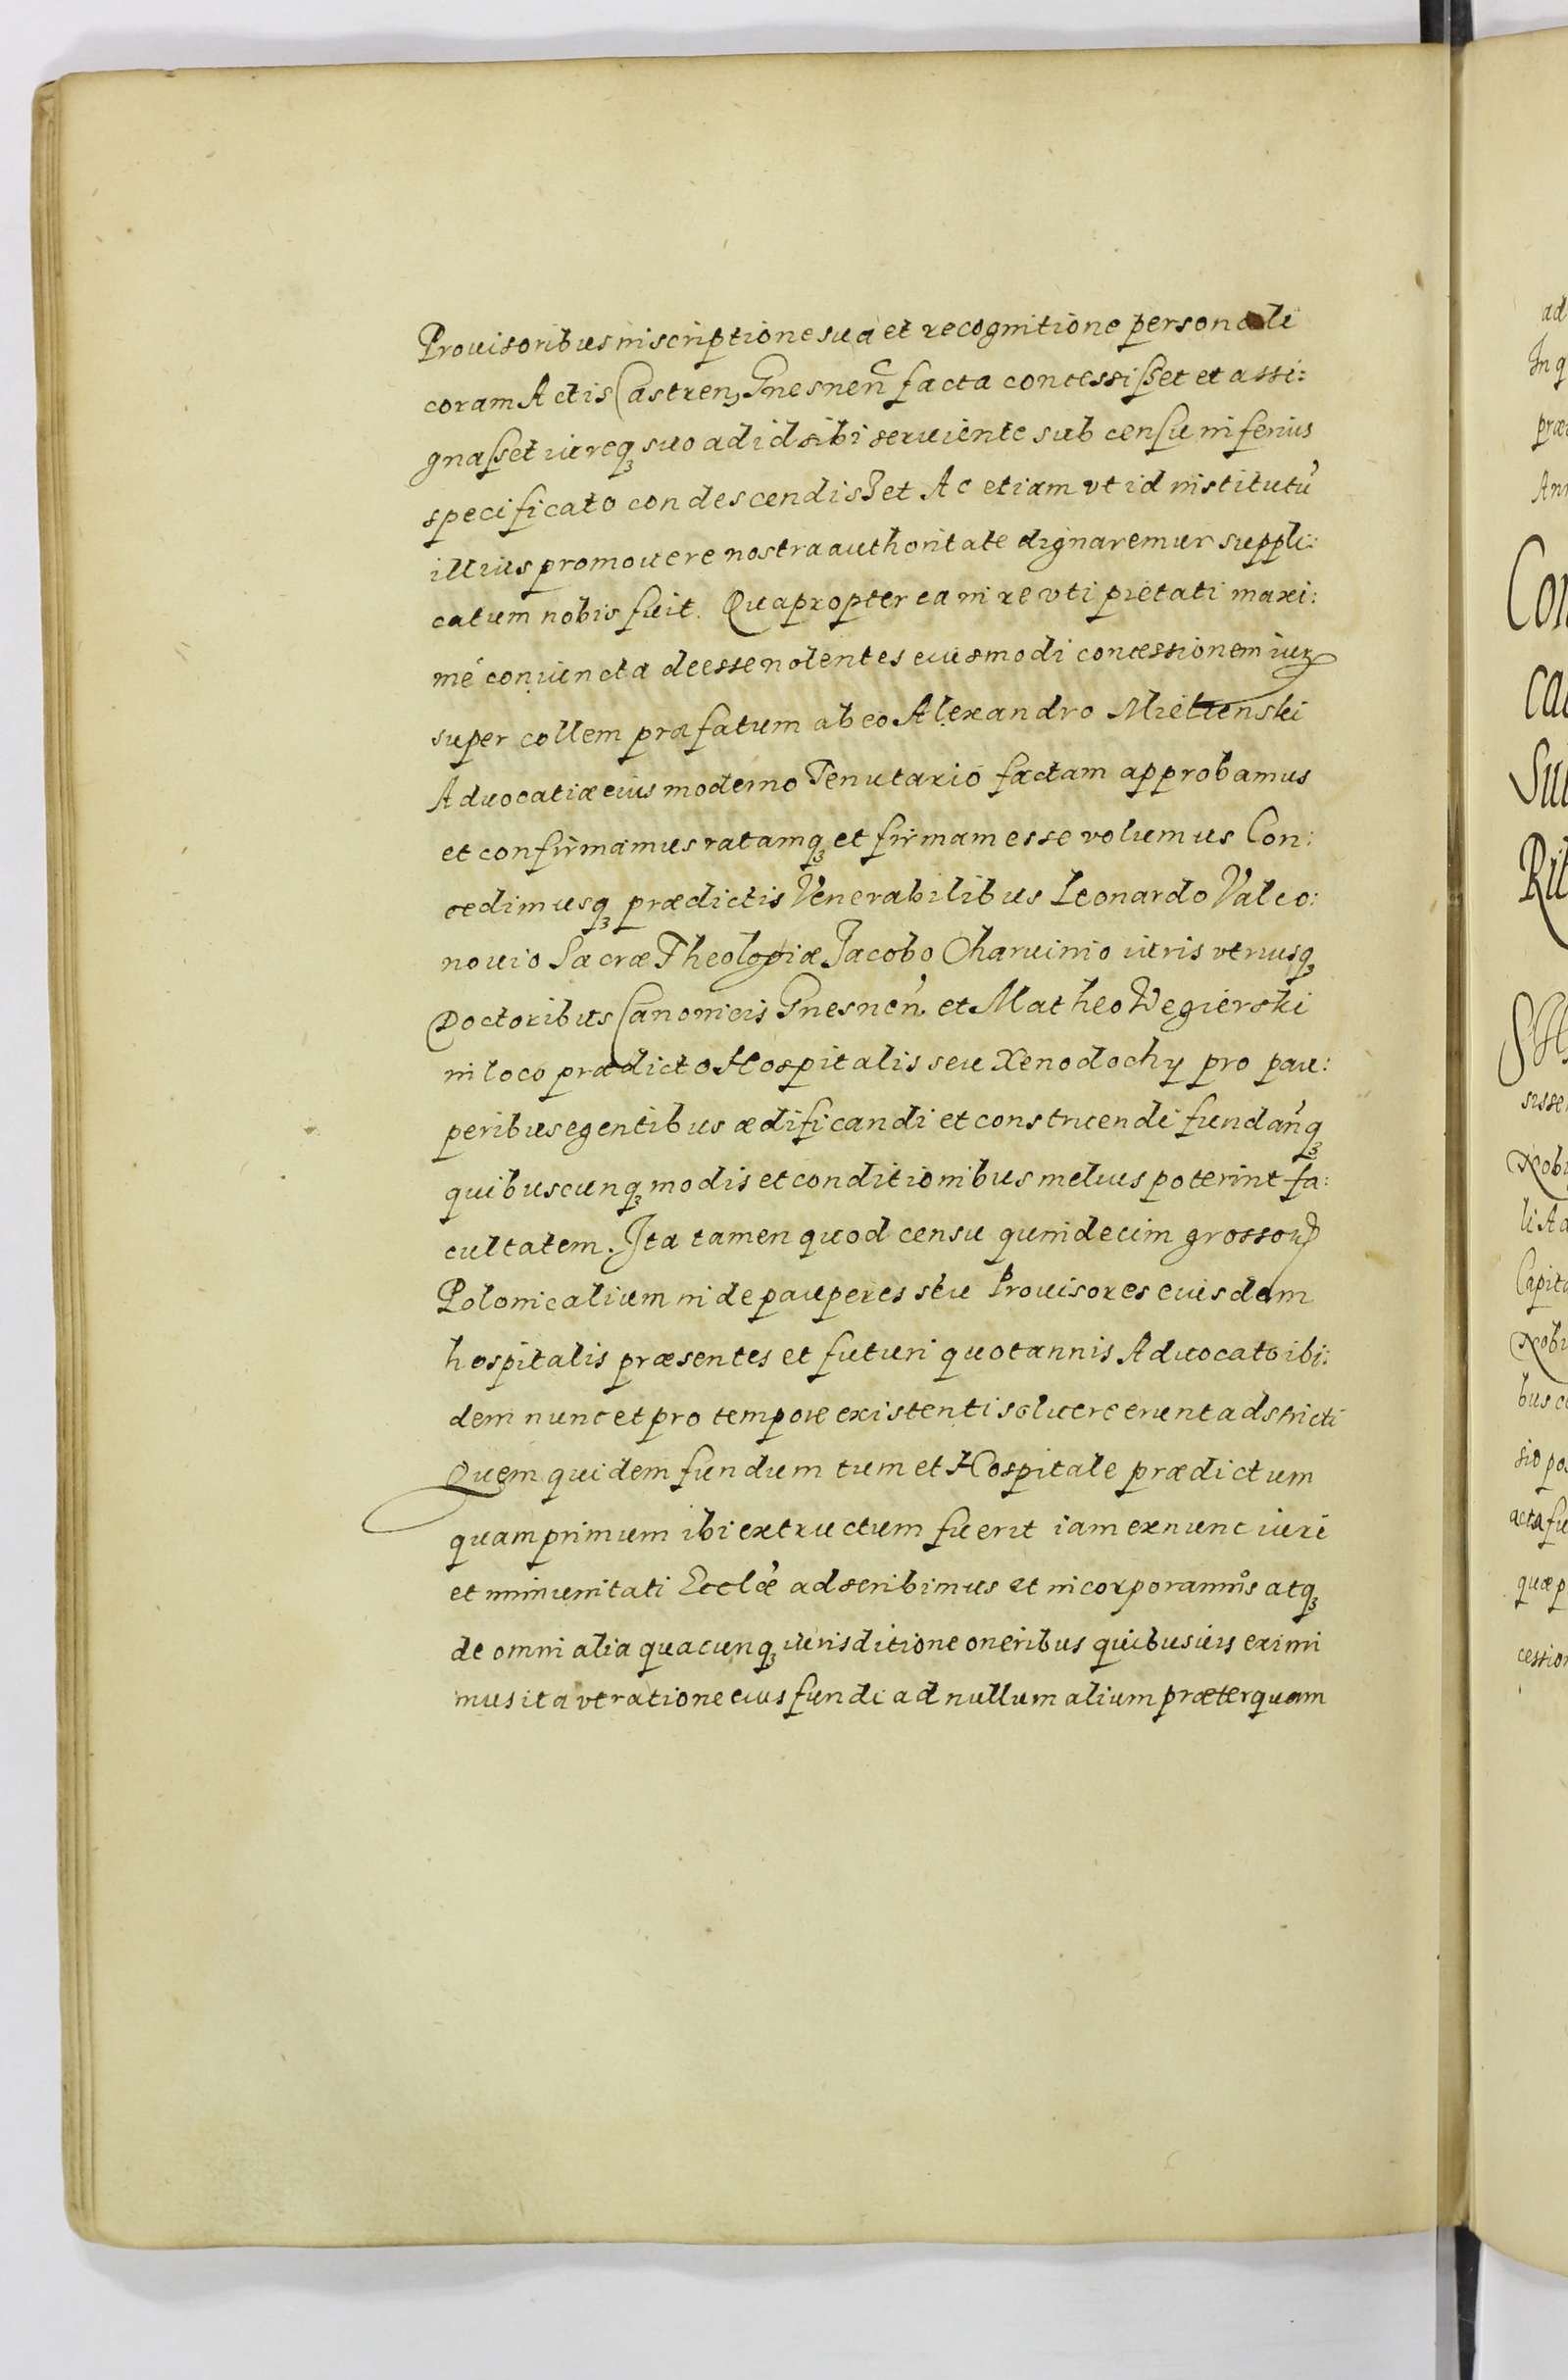 Prouisoribus inscriptione sua et recognitione personali
coram Actis Castren, Gnesnen̄ facta concessisset et assi:
gnasset iureq suo ad id sibi seruiente sub censu inferius
specificato condescendisset Ac etiam vt id institutũ
illius promouere nostra authoritate dignaremur suppli:
catum nobis fuit. Quapropter ea in re vti pietati maxi:
mé coniuncta deesse nolentes eiusmodi concessionem iur
super collem præfatum ab eo Alexandro Mielzenski
Aduocatiæ eius moderno Tenutario factam approbamus
et confirmamus ratamq et firmam esse volumus Con:
cedimusq prædictis Venerabilibus Leonardo Valeo:
nouio Sacræ Theologiæ Jacobo Charuinio iuris vtriusq
Doctoribus Canonicis Gnesnen̄ et Matheo Wegierski
in loco prædicto Hospitalis seu Xenodochy pro pau:
peribus egentibus ædificandi et construendi fundan̄q
quibuscunq modis et conditionibus melius poterint fa:
cultatem. Ita tamen quod censu quindecim grossor
Polonicalium inde pauperes seu Prouisores eiusdem
hospitalis præsentes et futuri quotannis Aduocato ibi:
dem nunc et pro tempore existenti soluere erunt adstricti
Quem quidem fundum tum et Hospitale prædictum
quamprimum ibi extructum fuerit iam ex nunc iuri
et immunitati Ecclæ̃ adscribimus et incorporamus atq
de omni alia quacunq iurisditione oneribus quibusuis eximi
mus ita vt ratione eius fundi ad nullum alium præterquam